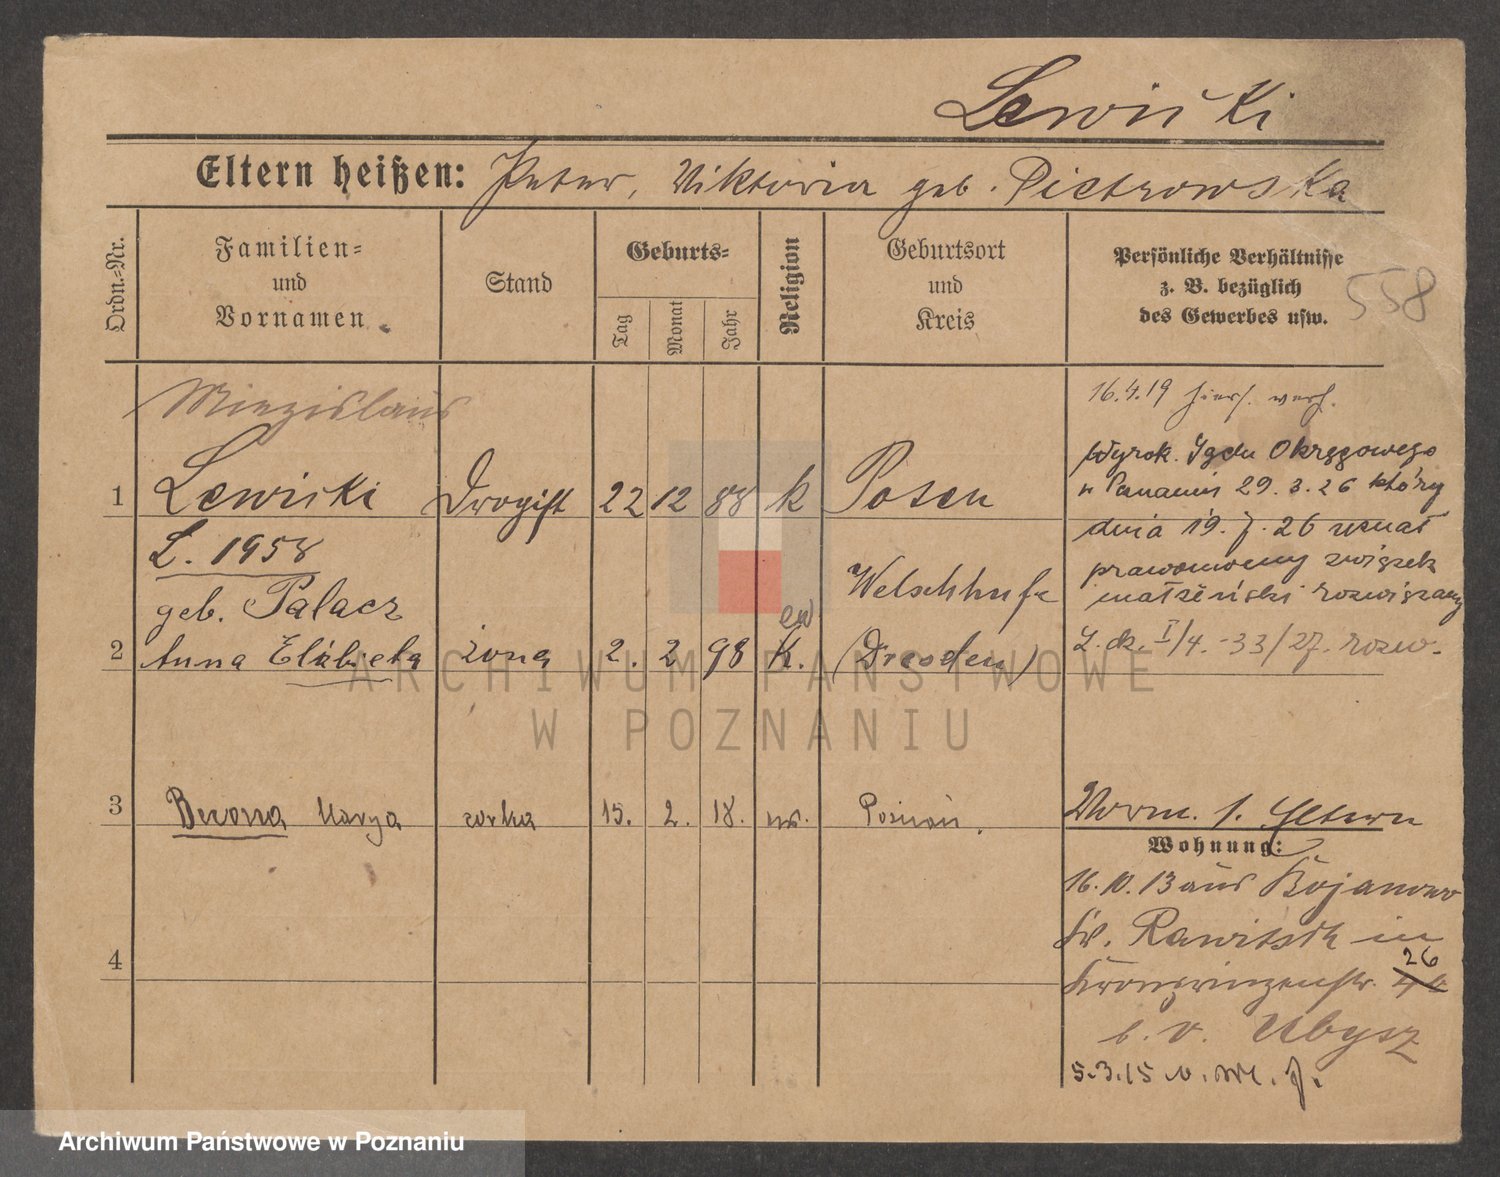 Lewiński
Eltern heißen: Peter, Viktoria geb. Pietrowska
Ordn.-Nr.
Familien-
und
Vornamen
Stand
Geburts-
Tag
Monat
Jahr
Religion
Geburtsort
und
Kreis
Persönliche Verhältnisse
z. B. bezüglich
des Gewerbes usw.
558
Miezislaus
16.4.19 hiers. verh.
1 Lewiński Drogist 22 12 88 k Posen
Wyrok. Sądu Okręgowego
w Poznaniu 29.3.26 który
dnia 19.7.26 uznał
prawomocny związek
małżeński rozwiązany
L. dz. I/4.-33/27. rozw.
L. 1958
geb. Palacz
Welschhufe
ew
2 Anna Elżbieta żona 2. 2 98 k. (Dresden)
3 Marya córka 15. 2. 18. Poznań.
Vorm. s. Eltern
Wohnung:
16.10.13 aus Bojanowo
Kr. Rawitsch in
26
Kronprinzenstr.
b. v. Ubysz
4
5.3.15 v.
ARCHIWUM PAŃSTWOWE
W POZNANIU
Archiwum Państwowe w Poznaniu